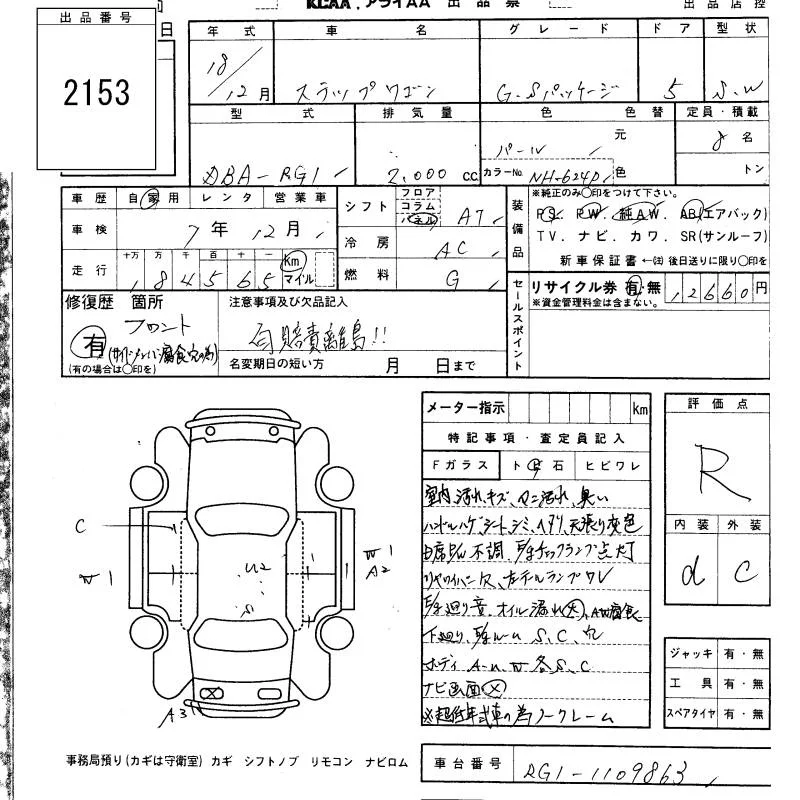 KCAA、アライAA 出品票
出品番号
2153
日
出品店控
年式
車名
グレード
ドア
型状
18/12月
G.Sパッケージ
5
S.W
型式
排気量
色
色替
定員・積載
DBA-RG1
2,000 cc
パール
元
色
カラーNo. NH-624P
8 名
トン
車歴
自家用
レンタ
営業車
シフト
フロア
コラム
パネル
AT
装備品
※純正のみ○印をつけて下さい。
PS. PW. 純AW. AB(エアバック)
TV. ナビ. カワ. SR(サンルーフ)
新車保証書←(注)後日送りに限り○印を
車検
7年12月
冷房
AC
走行
十万 万 千 百 十 一
184565
Km
マイル
燃料
G
セールスポイント
リサイクル券 有・無 12660円
※資金管理料金は含まない。
修復歴 箇所
フロント
有
(有の場合は○印を)
注意事項及び欠品記入
自賠責離島!!
名変期日の短い方 月 日まで
メーター指示 km
特記事項・査定員記入
Fガラス ト飛石 ヒビワレ
室内汚れ、キズ、マニ汚れ、臭い
ハンドルハゲ、シートシミ、ヘタリ、天張り変色
リヤワイパー欠、左テールランプワレ
下廻り、
ルーム S、C、
ボディ A-U、W 各S、C
ナビ画面×
※超低年式車の為ノークレーム
評価点
R
内装
外装
d
C
ジャッキ 有・無
工具 有・無
スペアタイヤ 有・無
C
W1
W1
A2
U2
S
A3
事務局預り(カギは守衛室) カギ シフトノブ リモコン ナビロム
車台番号
RG1-1109863